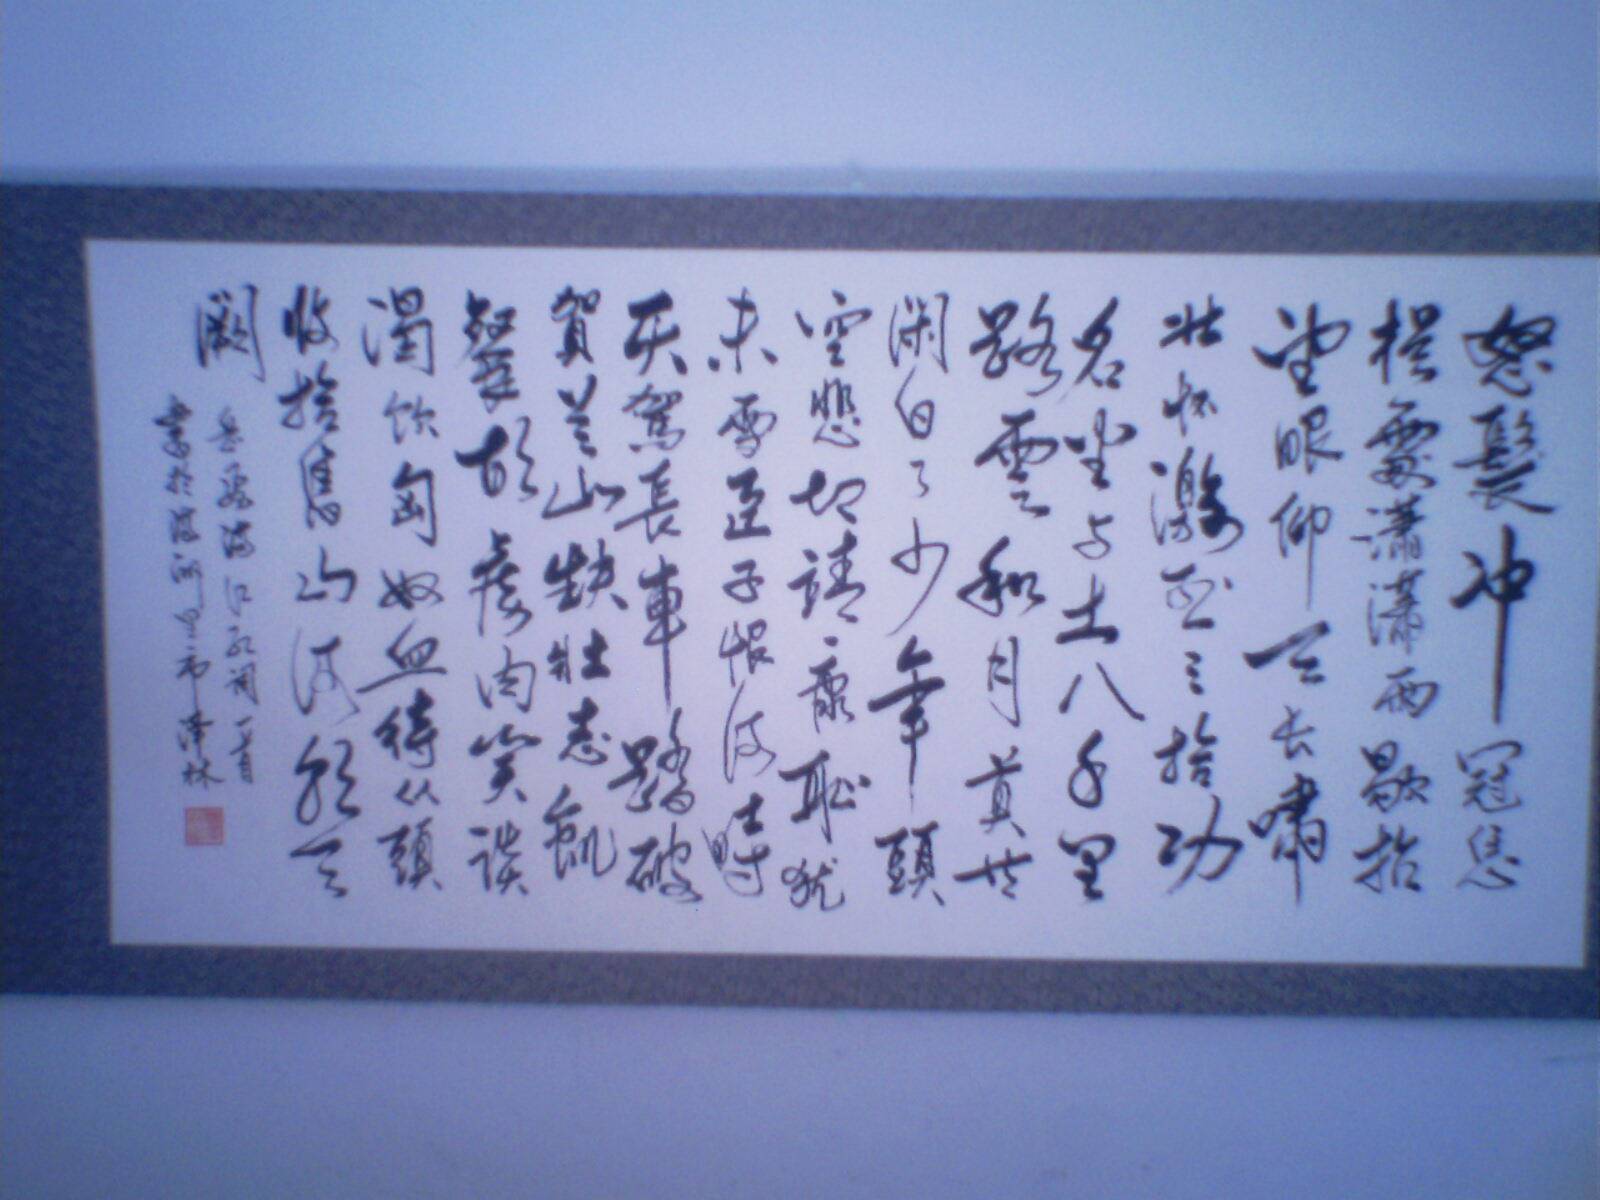 怒髮冲冠憑
欄處瀟瀟雨歇抬
望眼仰天长嘯
壮怀激烈三拾功
名塵与土八千里
路雲和月莫等
闲白了少年頭
空悲切靖康耻犹
未雪臣子恨何時
灭駕長車踏破
賀兰山缺壮志飢
餐胡虜肉笑談
渴饮匈奴血待从頭
收拾舊山河朝天
闕
岳飛满江红词一首